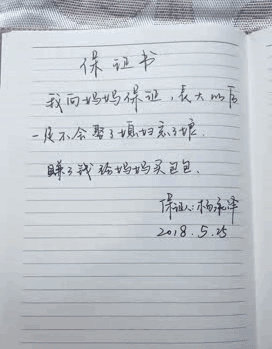 保证书
我向妈妈保证，长大以后
一定不会娶了媳妇忘了娘.
赚了钱给妈妈买包包.
保证人:杨承泽
2018.5.25